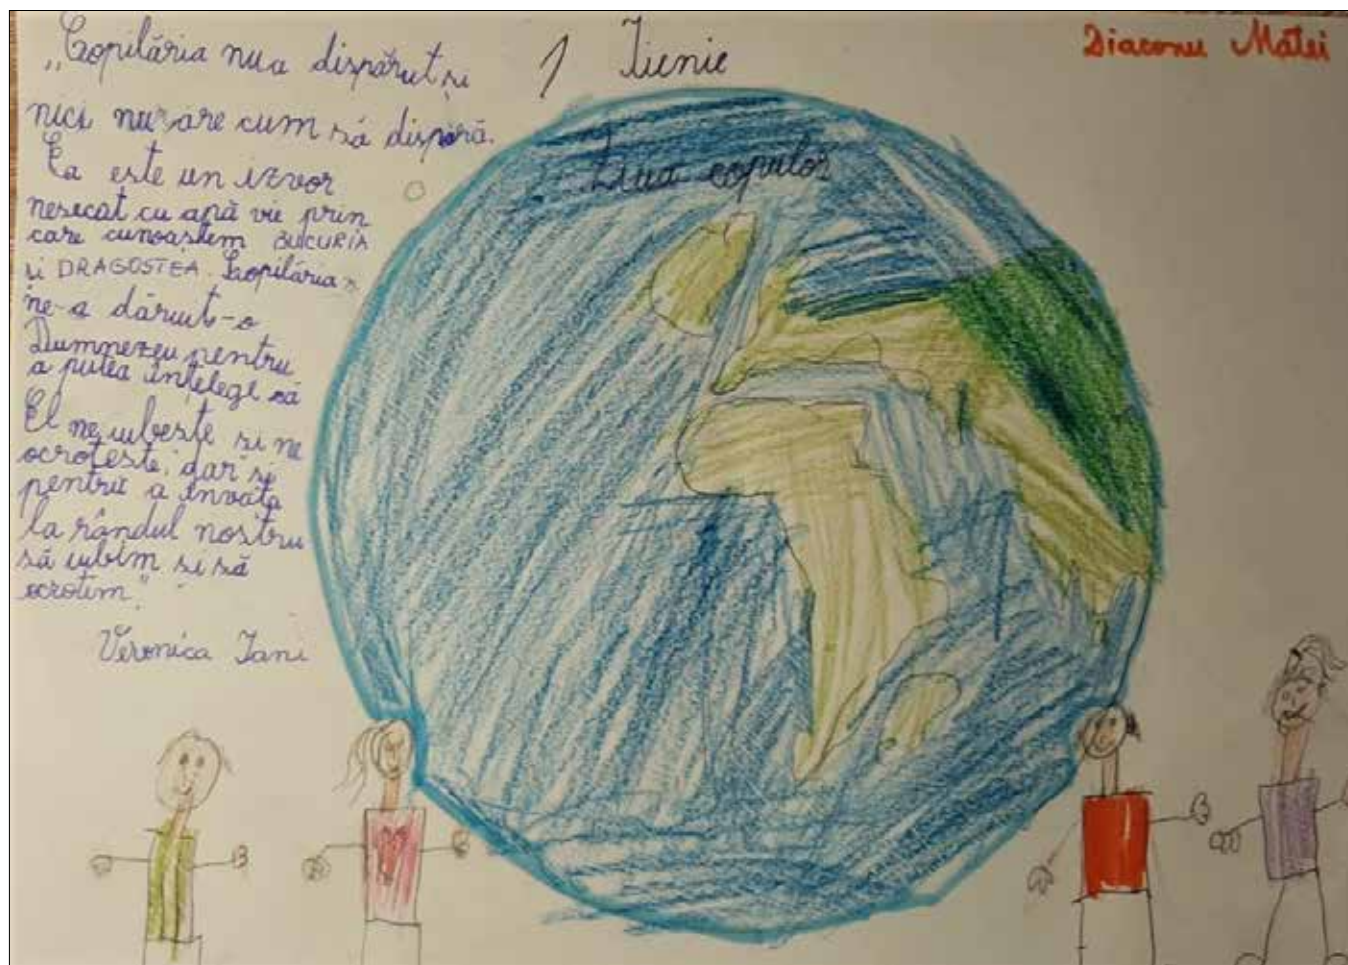 „Copilăria nu a dispărut și
nici nu are cum să dispară.
Ea este un izvor
nesecat cu apă vie prin
care cunoastem BUCURIA
si DRAGOSTEA. Copilăria
ne-a dăruit-o
Dumnezeu pentru
a putea înțelege că
El ne iubește si ne
ocrotește, dar si
pentru a învăta
la rândul nostru
să iubim si să
ocrotim."
Veronica Iani
1 Iunie
Ziua copiilor
Diaconu Matei